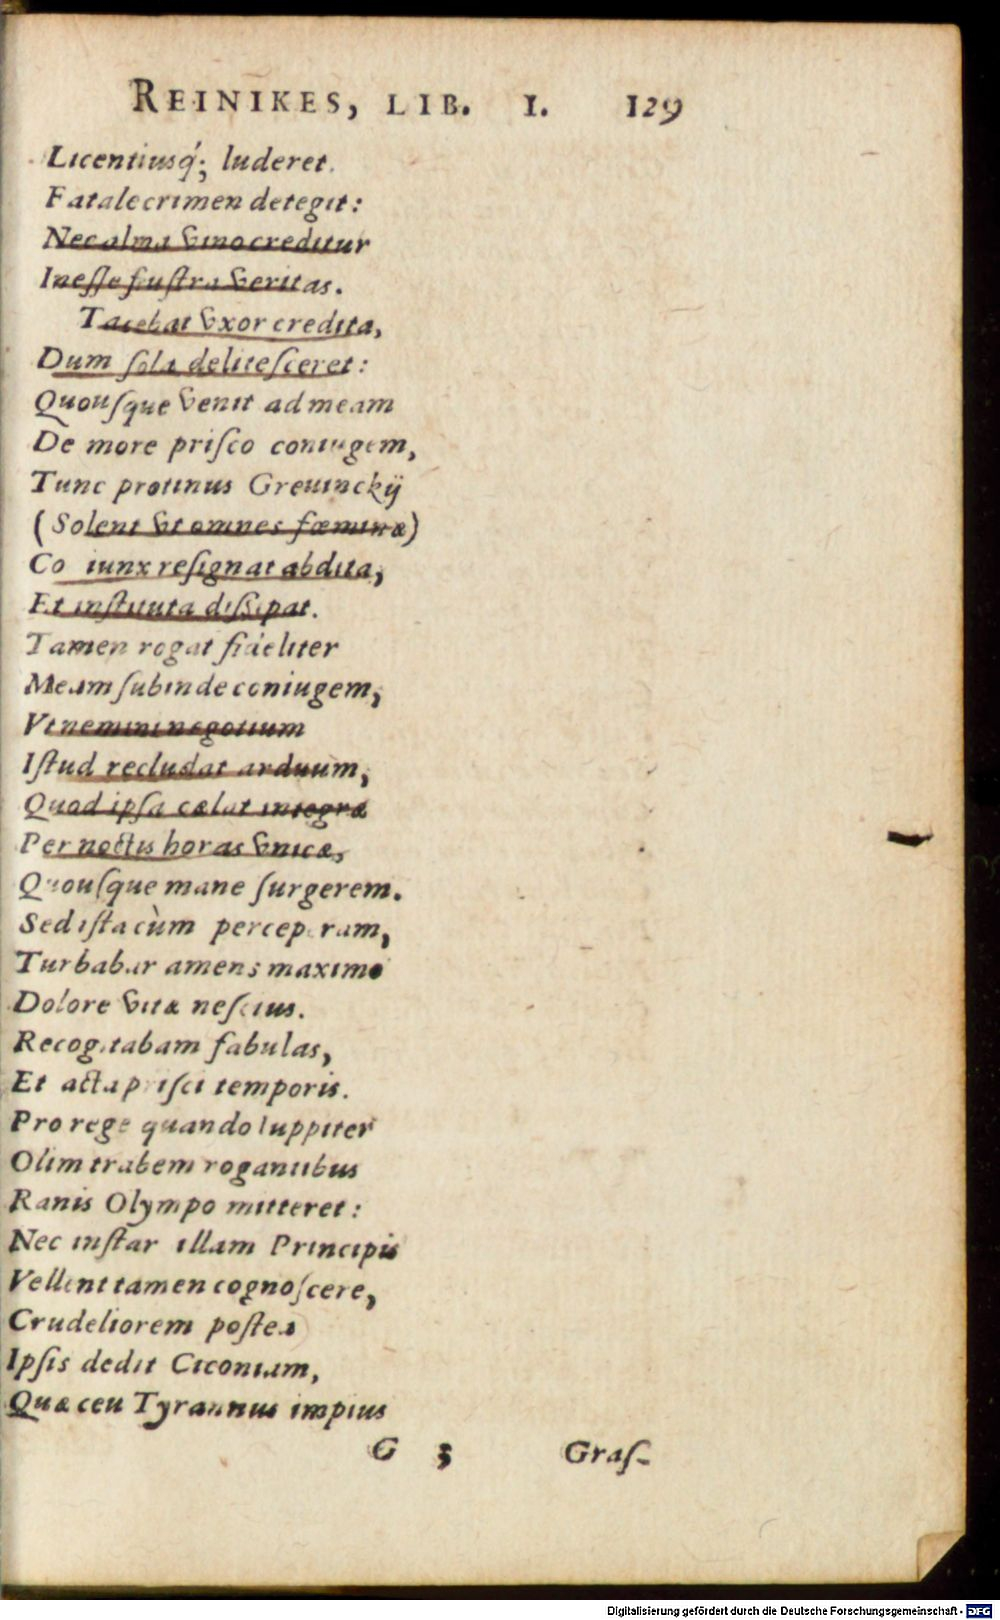 REINIKES, LIB. I. 129
Licentiusq́; luderet.
Fatale crimen detegit:
Nec alma vino creditur
Inesse frustra veritas.
Tacebat vxor credita,
Dum sola delitesceret:
Quousque venit ad meam
De more prisco coniugem,
Tunc protinus Greuinckij
(Solent vt omnes fœminæ)
Co iunx resignat abdita,
Et instituta dissipat.
Tamen rogat fideliter
Meam subinde coniugem,
Vt nemini negotium
Istud recludat arduum,
Quod ipsa cælat integræ
Per noctis horas vnicæ,
Quousque mane surgerem.
Sed ista cùm perceperam,
Turbabar amens maximo
Dolore vitæ nescius.
Recogitabam fabulas,
Et acta prisci temporis.
Pro rege quando Iuppiter
Olim trabem rogantibus
Ranis Olympo mitteret:
Nec instar illam Principis
Vellent tamen cognoscere,
Crudeliorem postea
Ipsis dedit Ciconiam,
Quæ ceu Tyrannus impius
G 3 Gras-
Digitalisierung gefördert durch die Deutsche Forschungsgemeinschaft - DFG